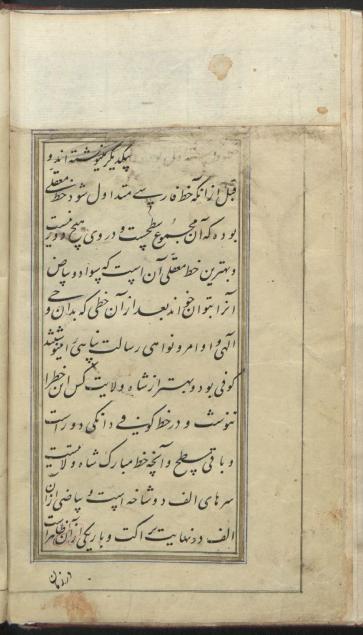 بیکدیگر نوشته اند و
قبل از آنکه خط فارسی متداول شود خط معقلی
بوده که آن مجموع سطحست و در وی هیچ دور نیست
و بهترین خط معقلی آن است که سواد و بیاض
آنرا بتوان خواند بعد از آن خطی که بدان وحی
آلهی و اوامر و نواهی رسالت پناهی را می‌نوشتند
کوفی بود و بهتر از شاه ولایت کس آن خط را
ننوشت و در خط کوفی دانکی دور است
و باقی سطح و آنچه خط مبارک شاه ولایتست
سرهای الف دو شاخه است و بیاضی از آن
الف در نهایت نزاکت و باریکی از آن ظاهر است